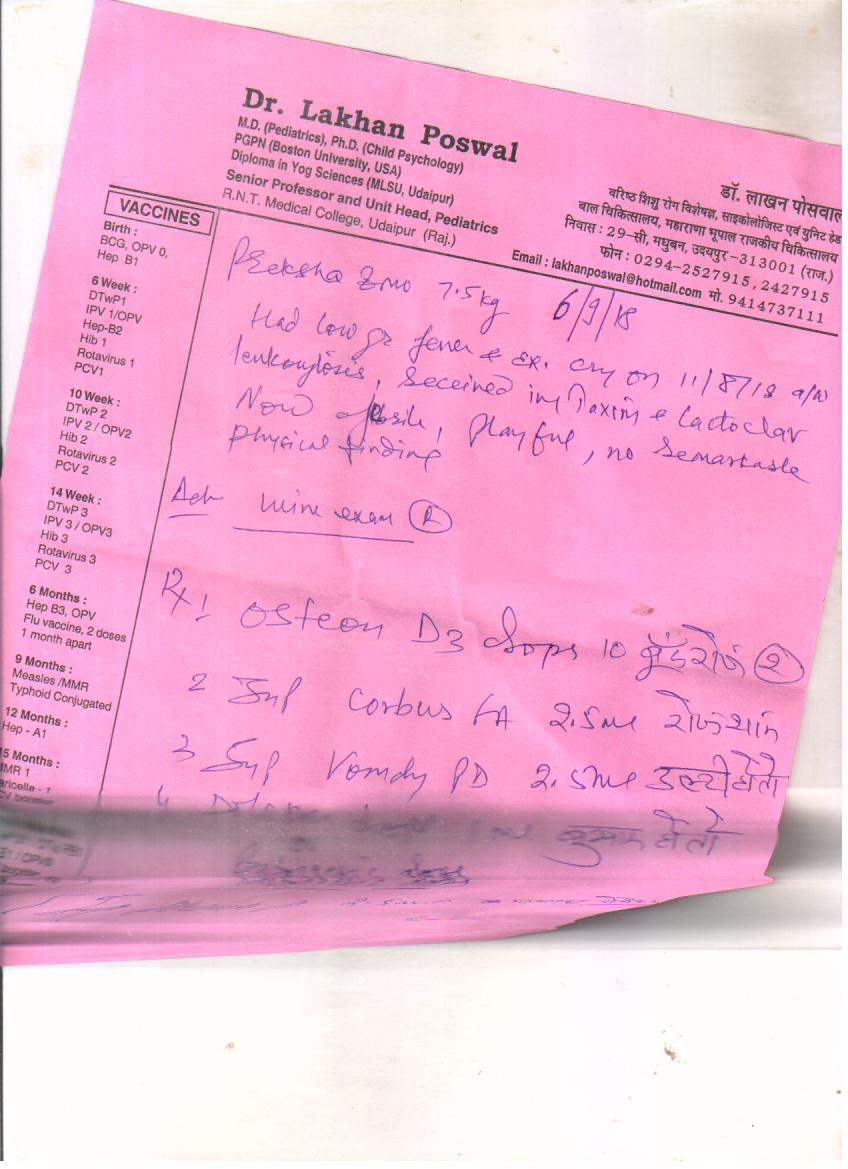 Dr. Lakhan Poswal
M.D. (Pediatrics), Ph.D. (Child Psychology)
PGPN (Boston University, USA)
Diploma in Yog Sciences (MLSU, Udaipur)
Senior Professor and Unit Head, Pediatrics
R.N.T. Medical College, Udaipur (Raj.)
डॉ. लाखन पोसवाल
वरिष्ठ शिशु रोग विशेषज्ञ, साइकोलोजिस्ट एवं युनिट हेड
बाल चिकित्सालय, महाराणा भूपाल राजकीय चिकित्सालय
निवास : 29-सी, मधुबन, उदयपुर-313001 (राज.)
फोन : 0294-2527915, 2427915
Email : lakhanposwal@hotmail.com मो. 9414737111
VACCINES
Birth :
BCG, OPV 0,
Hep B1
6 Week :
DTwP1
IPV 1/OPV
Hep-B2
Hib 1
Rotavirus 1
PCV1
10 Week :
DTwP 2
IPV 2 / OPV2
Hib 2
Rotavirus 2
PCV 2
14 Week :
DTwP 3
IPV 3 / OPV3
Hib 3
Rotavirus 3
PCV 3
6 Months :
Hep B3, OPV
Flu vaccine, 2 doses
1 month apart
9 Months :
Measles /MMR
Typhoid Conjugated
12 Months :
Hep - A1
15 Months :
MMR 1
aricella - 1
Preksha 7.5kg 6/9/18
Had low gr fever c ex. cry on 11/8/18
leukocytosis, received inj Taxim c Lactoclav
Now playful, no remarkable
physical finding
Adv urine exam (R)
Rx 1 Osteon D3 drops 10 बूंद रोज (2)
2 Syp Corbus 2.5ml रोज शाम
3 Syp Vomdy PD 2.5ml उल्टी हो तो
4 1ml बुखार हो तो